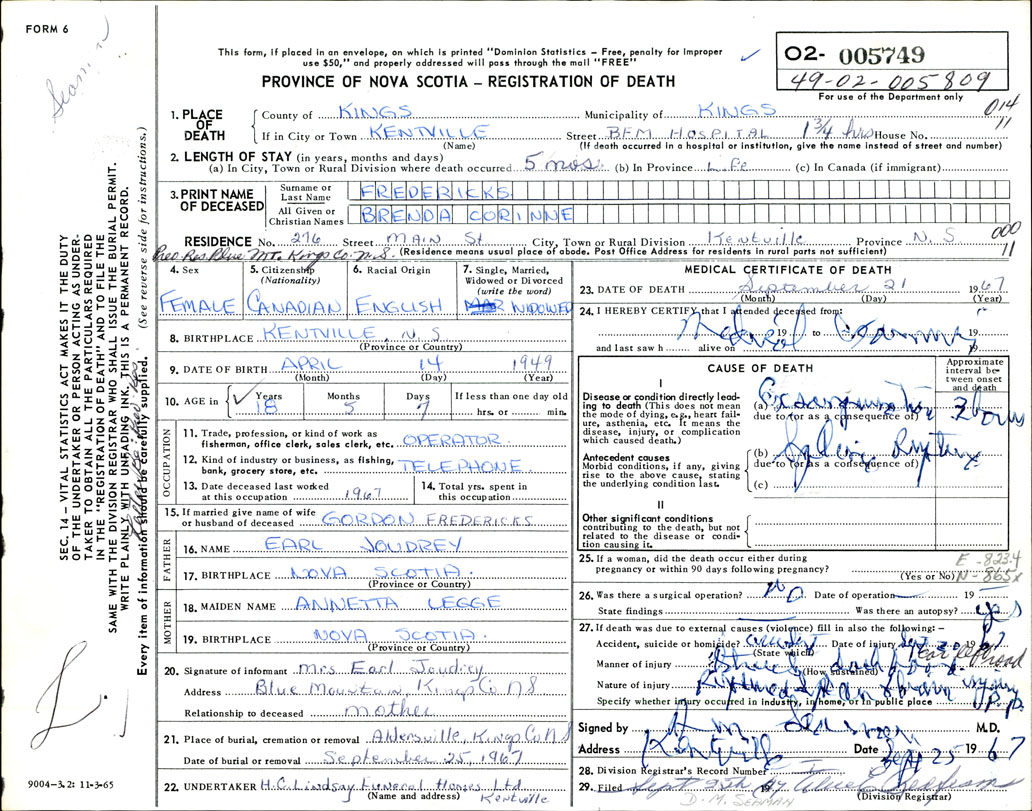 FORM 6
This form, if placed in an envelope, on which is printed "Dominion Statistics – Free, penalty for improper
use $50," and properly addressed will pass through the mail "FREE"
PROVINCE OF NOVA SCOTIA – REGISTRATION OF DEATH
O2- 005749
49-02-005809
For use of the Department only
014
11
1. PLACE OF DEATH
County of KINGS Municipality of KINGS
If in City or Town KENTVILLE Street BFM HOSPITAL 1 3/4 hrs House No.
(Name) (If death occurred in a hospital or institution, give the name instead of street and number)
2. LENGTH OF STAY (in years, months and days)
(a) In City, Town or Rural Division where death occurred 5 mos. (b) In Province Life (c) In Canada (if immigrant)
3. PRINT NAME OF DECEASED
Surname or Last Name FREDERICKS
All Given or Christian Names BRENDA CORINNE
RESIDENCE No. 276 Street MAIN St City, Town or Rural Division Kentville Province N.S
000
11
Prev Res Blue Mt. Kings Co. N.S. (Residence means usual place of abode. Post Office Address for residents in rural parts not sufficient)
4. Sex
FEMALE
5. Citizenship (Nationality)
CANADIAN
6. Racial Origin
ENGLISH
7. Single, Married, Widowed or Divorced (write the word)
WIDOWED
8. BIRTHPLACE KENTVILLE, N.S
(Province or Country)
9. DATE OF BIRTH APRIL 14 1949
(Month) (Day) (Year)
10. AGE in Years Months Days If less than one day old
18 5 7 hrs. or min.
OCCUPATION
11. Trade, profession, or kind of work as
fisherman, office clerk, sales clerk, etc. OPERATOR
12. Kind of industry or business, as fishing,
bank, grocery store, etc. TELEPHONE
13. Date deceased last worked
at this occupation 1967
14. Total yrs. spent in
this occupation
15. If married give name of wife
or husband of deceased GORDON FREDERICKS
FATHER
16. NAME EARL JOUDREY
17. BIRTHPLACE NOVA SCOTIA.
(Province or Country)
MOTHER
18. MAIDEN NAME ANNETTA LEGGE
19. BIRTHPLACE NOVA SCOTIA.
(Province or Country)
20. Signature of informant Mrs Earl Joudrey
Address Blue Mountain, Kings Co NS
Relationship to deceased mother
21. Place of burial, cremation or removal Aldersville, Kings Co NS
Date of burial or removal September 25, 1967
22. UNDERTAKER H.C. Lindsay Funeral Homes Ltd
(Name and address) Kentville
MEDICAL CERTIFICATE OF DEATH
23. DATE OF DEATH September 21 1967
(Month) (Day) (Year)
24. I HEREBY CERTIFY that I attended deceased from:
Medical Examiner 19 to 19
and last saw h alive on 19
CAUSE OF DEATH
Approximate interval between onset and death
I
Disease or condition directly leading to death (This does not
mean the mode of dying, e.g., heart failure, asthenia, etc. It means the
disease, injury, or complication
which caused death.)
(a) Exsanguination 3 hours
due to (or as a consequence of)
Antecedent causes
Morbid conditions, if any, giving
rise to the above cause, stating
the underlying condition last.
(b) Splenic Rupture
due to (or as a consequence of)
(c)
II
Other significant conditions
contributing to the death, but not
related to the disease or condition causing it.
25. If a woman, did the death occur either during
pregnancy or within 90 days following pregnancy?
(Yes or No)
E-823.4
N-865x
26. Was there a surgical operation? NO Date of operation 19
State findings Was there an autopsy? yes
27. If death was due to external causes (violence) fill in also the following: –
Accident, suicide or homicide? accident Date of injury Sept 1967
(State which)
Manner of injury Struck
(How sustained)
Nature of injury Ruptured Spleen & brain injury
Specify whether injury occurred in industry, in home, or in public place P.P.
Signed by M.D.
Address Kentville Date Sept 25 1967
28. Division Registrar's Record Number
29. Filed Sept 25th 19
(Division Registrar)
D. M. SEAMAN
SEC. 14 – VITAL STATISTICS ACT MAKES IT THE DUTY
OF THE UNDERTAKER OR PERSON ACTING AS UNDERTAKER TO OBTAIN ALL THE PARTICULARS REQUIRED
IN THE "REGISTRATION OF DEATH" AND TO FILE THE
SAME WITH THE DIVISION REGISTRAR WHO SHALL ISSUE THE BURIAL PERMIT.
WRITE PLAINLY WITH UNFADING INK. THIS IS A PERMANENT RECORD.
Every item of information should be carefully supplied. (See reverse side for instructions.)
9004-3.2: 11-3-65